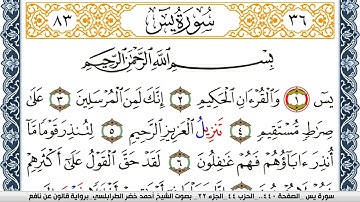 ٨٣ سُورَةُ يسٓ ٣٦
بِسْمِ اللَّهِ الرَّحْمَٰنِ الرَّحِيمِ
يسٓ ١ وَالْقُرْءَانِ الْحَكِيمِ ٢ إِنَّكَ لَمِنَ الْمُرْسَلِينَ ٣ عَلَىٰ
صِرَٰطٍ مُّسْتَقِيمٍ ٤ تَنزِيلُ الْعَزِيزِ الرَّحِيمِ ٥ لِتُنذِرَ قَوْمًا مَّا
أُنذِرَ ءَابَآؤُهُمْ فَهُمْ غَٰفِلُونَ ٦ لَقَدْ حَقَّ الْقَوْلُ عَلَىٰ أَكْثَرِهِمْ
سورة يس _ الصفحة ٤٤٠.. الحزب ٤٤ الجزء ٢٢_ بصوت الشيخ أحمد خضر الطرابلسي برواية قالون عن نافع